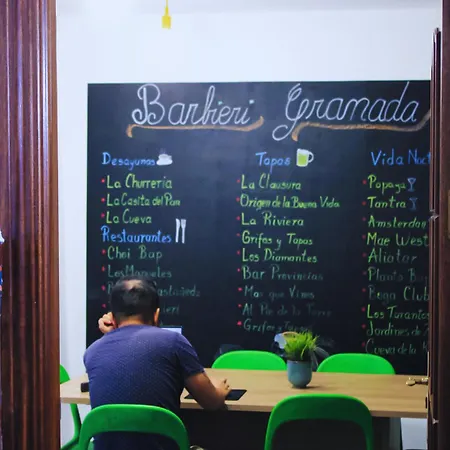 Barbieri Granada
Desayunos
La Churrería
La Casita del Pan
La Cueva
Restaurantes
Choi Bap
Los Manueles
Tapas
La Clausura
Origen de la Buena Vida
La Riviera
Grifos y Tapas
Los Diamantes
Bar Provincias
Mas que Vinos
Al Pie de la Torre
Vida Noct
Papaya
Tantra
Amsterdam
Mae West
Aliatar
Planta Baja
Boga Club
Los Tarantos
Jardines de
Cueva de la